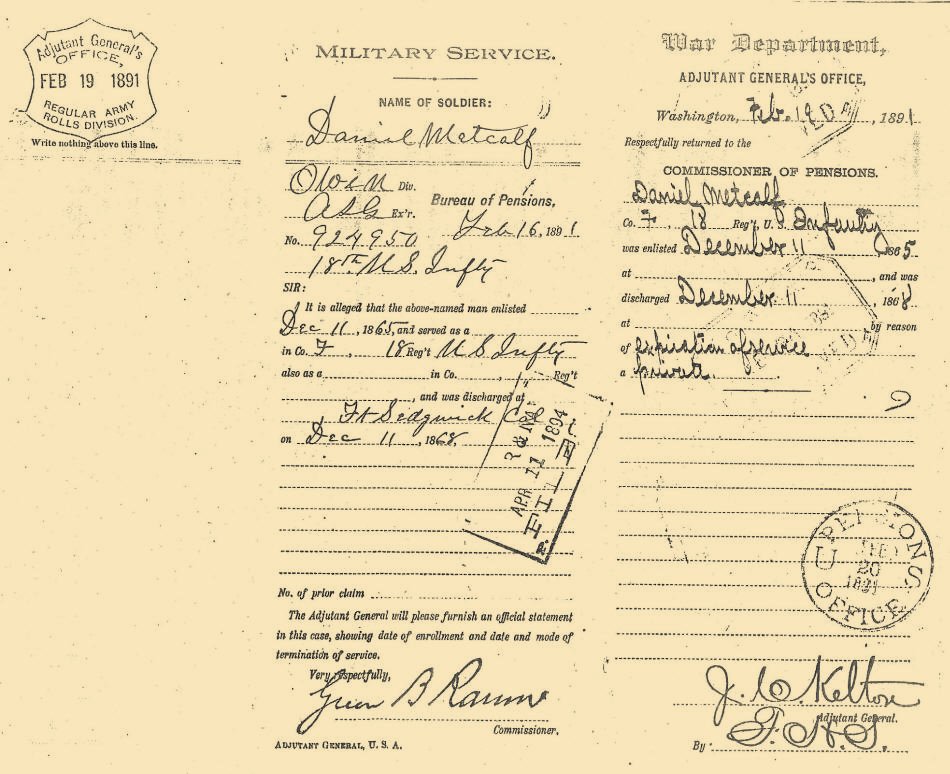 Adjutant General's
OFFICE,
FEB 19 1891
REGULAR ARMY
ROLLS DIVISION.
Write nothing above this line.
MILITARY SERVICE.
NAME OF SOLDIER:
Daniel Metcalf
O W & N Div.
A S G Ex'r.
Bureau of Pensions,
No. 924950 Feb 16, 1891
18th U.S. Infty
SIR:
It is alleged that the above-named man enlisted
Dec 11, 1865, and served as a
in Co. F, 18 Reg't U S Infty
also as a in Co. , Reg't
, and was discharged at
Ft Sedgwick C.T.
on Dec 11, 1868.
R & N
APR 11 1894
FILED
No. of prior claim
The Adjutant General will please furnish an official statement
in this case, showing date of enrollment and date and mode of
termination of service.
Very respectfully,
Green B Raum
Commissioner.
ADJUTANT GENERAL, U. S. A.
War Department,
ADJUTANT GENERAL'S OFFICE,
Washington, Feb. 19, 1891
Respectfully returned to the
COMMISSIONER OF PENSIONS.
Daniel Metcalf
Co. F, 18 Reg't, U. S. Infantry
was enlisted December 11, 1865
at , and was
discharged December 11, 1868
at by reason
of expiration of service
a private.
U S PENSIONS
FEB
20
1891
OFFICE
J. C. Kelton
Adjutant General.
By F. H. S.